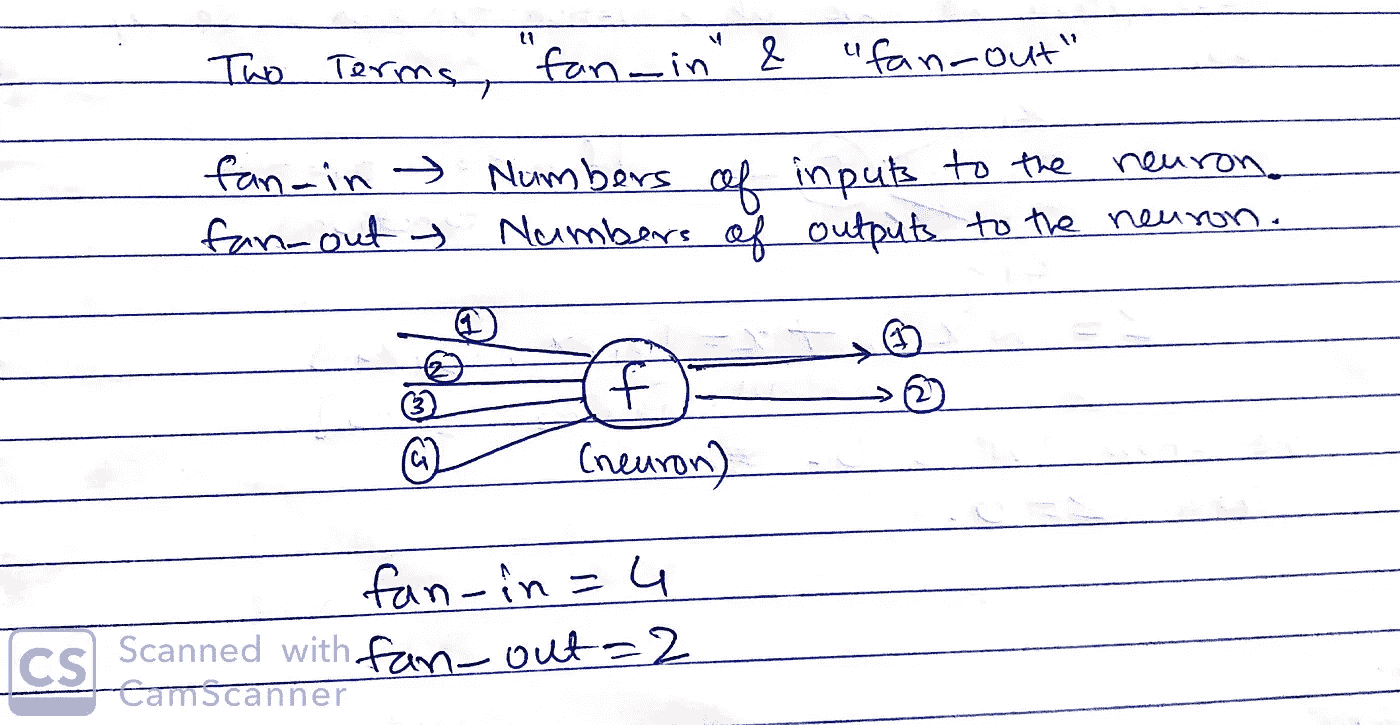 Two Terms, "fan-in" & "fan-out"
fan-in → Numbers of inputs to the neuron.
fan-out → Numbers of outputs to the neuron.
① ①
② ②
③
④
f
(neuron)
fan-in = 4
fan-out = 2
CS Scanned with
CamScanner